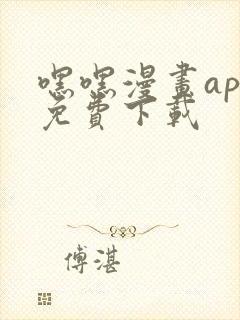 嘿嘿漫畫ap
免費下載
傅湛